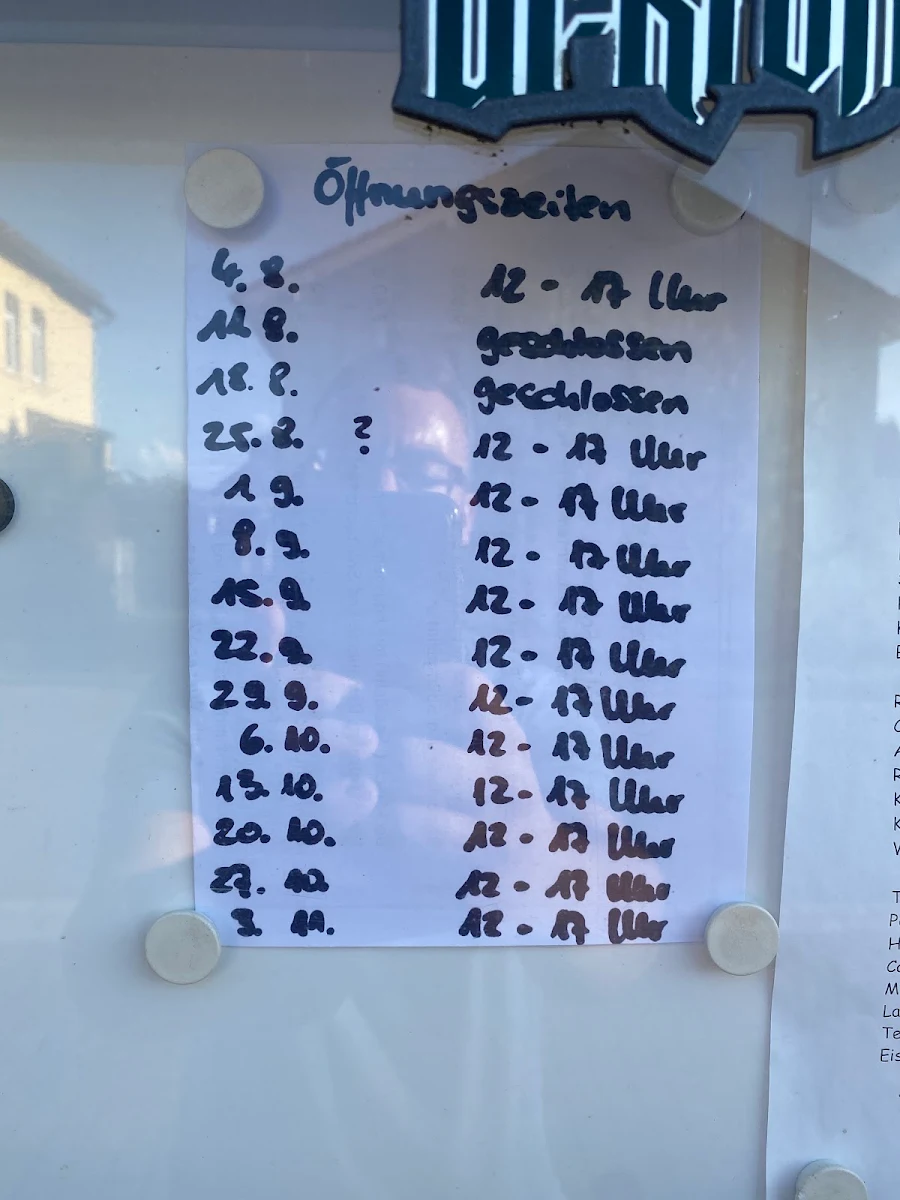 Öffnungszeiten
4. 8. 12 - 17 Uhr
11. 8. geschlossen
18. 8. geschlossen
25. 8. ? 12 - 17 Uhr
1. 9. 12 - 17 Uhr
8. 9. 12 - 17 Uhr
15. 9. 12 - 17 Uhr
22. 9. 12 - 17 Uhr
29. 9. 12 - 17 Uhr
6. 10. 12 - 17 Uhr
13. 10. 12 - 17 Uhr
20. 10. 12 - 17 Uhr
27. 10. 12 - 17 Uhr
3. 11. 12 - 17 Uhr